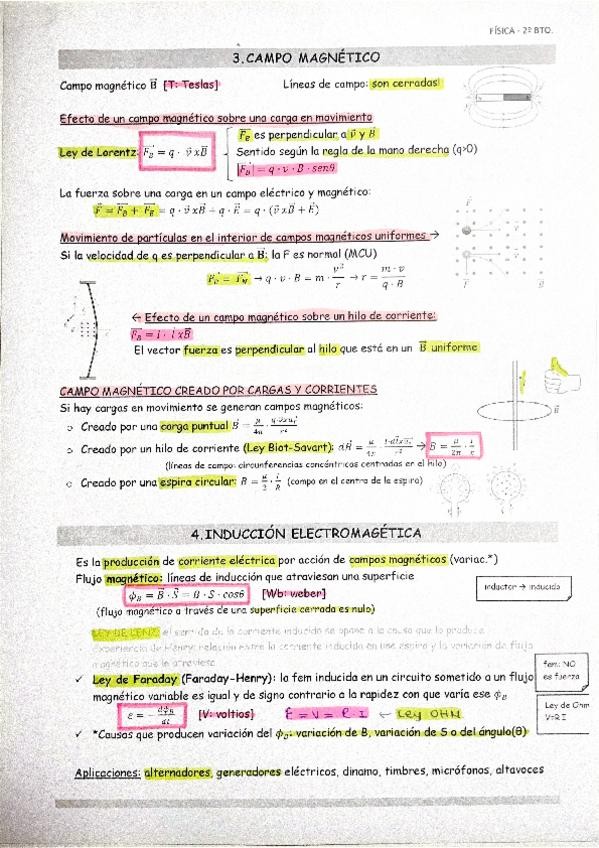 FÍSICA - 2º BTO.
3.CAMPO MAGNÉTICO
Campo magnético B⃗ [T: Teslas] Líneas de campo: son cerradas!
Efecto de un campo magnético sobre una carga en movimiento
F⃗_B es perpendicular a v⃗ y B⃗
Ley de Lorentz: F⃗_B = q · v⃗ x B⃗ Sentido según la regla de la mano derecha (q>0)
|F⃗_B| = q · v · B · senθ
La fuerza sobre una carga en un campo eléctrico y magnético:
F⃗ = F⃗_B + F⃗_E = q · v⃗ x B⃗ + q · E⃗ = q · (v⃗ x B⃗ + E⃗)
Movimiento de partículas en el interior de campos magnéticos uniformes →
Si la velocidad de q es perpendicular a B⃗: la F es normal (MCU)
→ q · v · B = m · v²/r → r = m · v / q · B
← Efecto de un campo magnético sobre un hilo de corriente:
F⃗_B = i · l⃗ x B⃗
El vector fuerza es perpendicular al hilo que esté en un B⃗ uniforme
CAMPO MAGNÉTICO CREADO POR CARGAS Y CORRIENTES
Si hay cargas en movimiento se generan campos magnéticos:
○ Creado por una carga puntual
○ Creado por un hilo de corriente (Ley Biot-Savart): → B = μ/2π · i/r
(líneas de campo: circunferencias concéntricas centradas en el hilo)
○ Creado por una espira circular: B = μ/2 · i/R (campo en el centro de la espira)
4.INDUCCIÓN ELECTROMAGÉTICA
Es la producción de corriente eléctrica por acción de campos magnéticos (variac.*)
Flujo magnético: líneas de inducción que atraviesan una superficie
ϕ_B = B⃗ · S⃗ = B · S · cosθ [Wb: weber]
inductor → inducido
(flujo magnético a través de una superficie cerrada es nulo)
LEY DE LENZ: el sentido de la corriente inducida se opone a la causa que la produce
experiencia de Henry: relación entre la corriente inducida en una espira y la variación de flujo
magnético que la atraviesa
✓ Ley de Faraday (Faraday-Henry): la fem inducida en un circuito sometido a un flujo
magnético variable es igual y de signo contrario a la rapidez con que varía ese ϕ_B
fem: NO
es fuerza
ε = - dϕ_B/dt [V: voltios] ε = V = R · I ← Ley OHM
Ley de Ohm
V=R·I
✓ *Causas que producen variación del ϕ_B: variación de B, variación de S o del ángulo(θ)
Aplicaciones: alternadores, generadores eléctricos, dinamo, timbres, micrófonos, altavoces